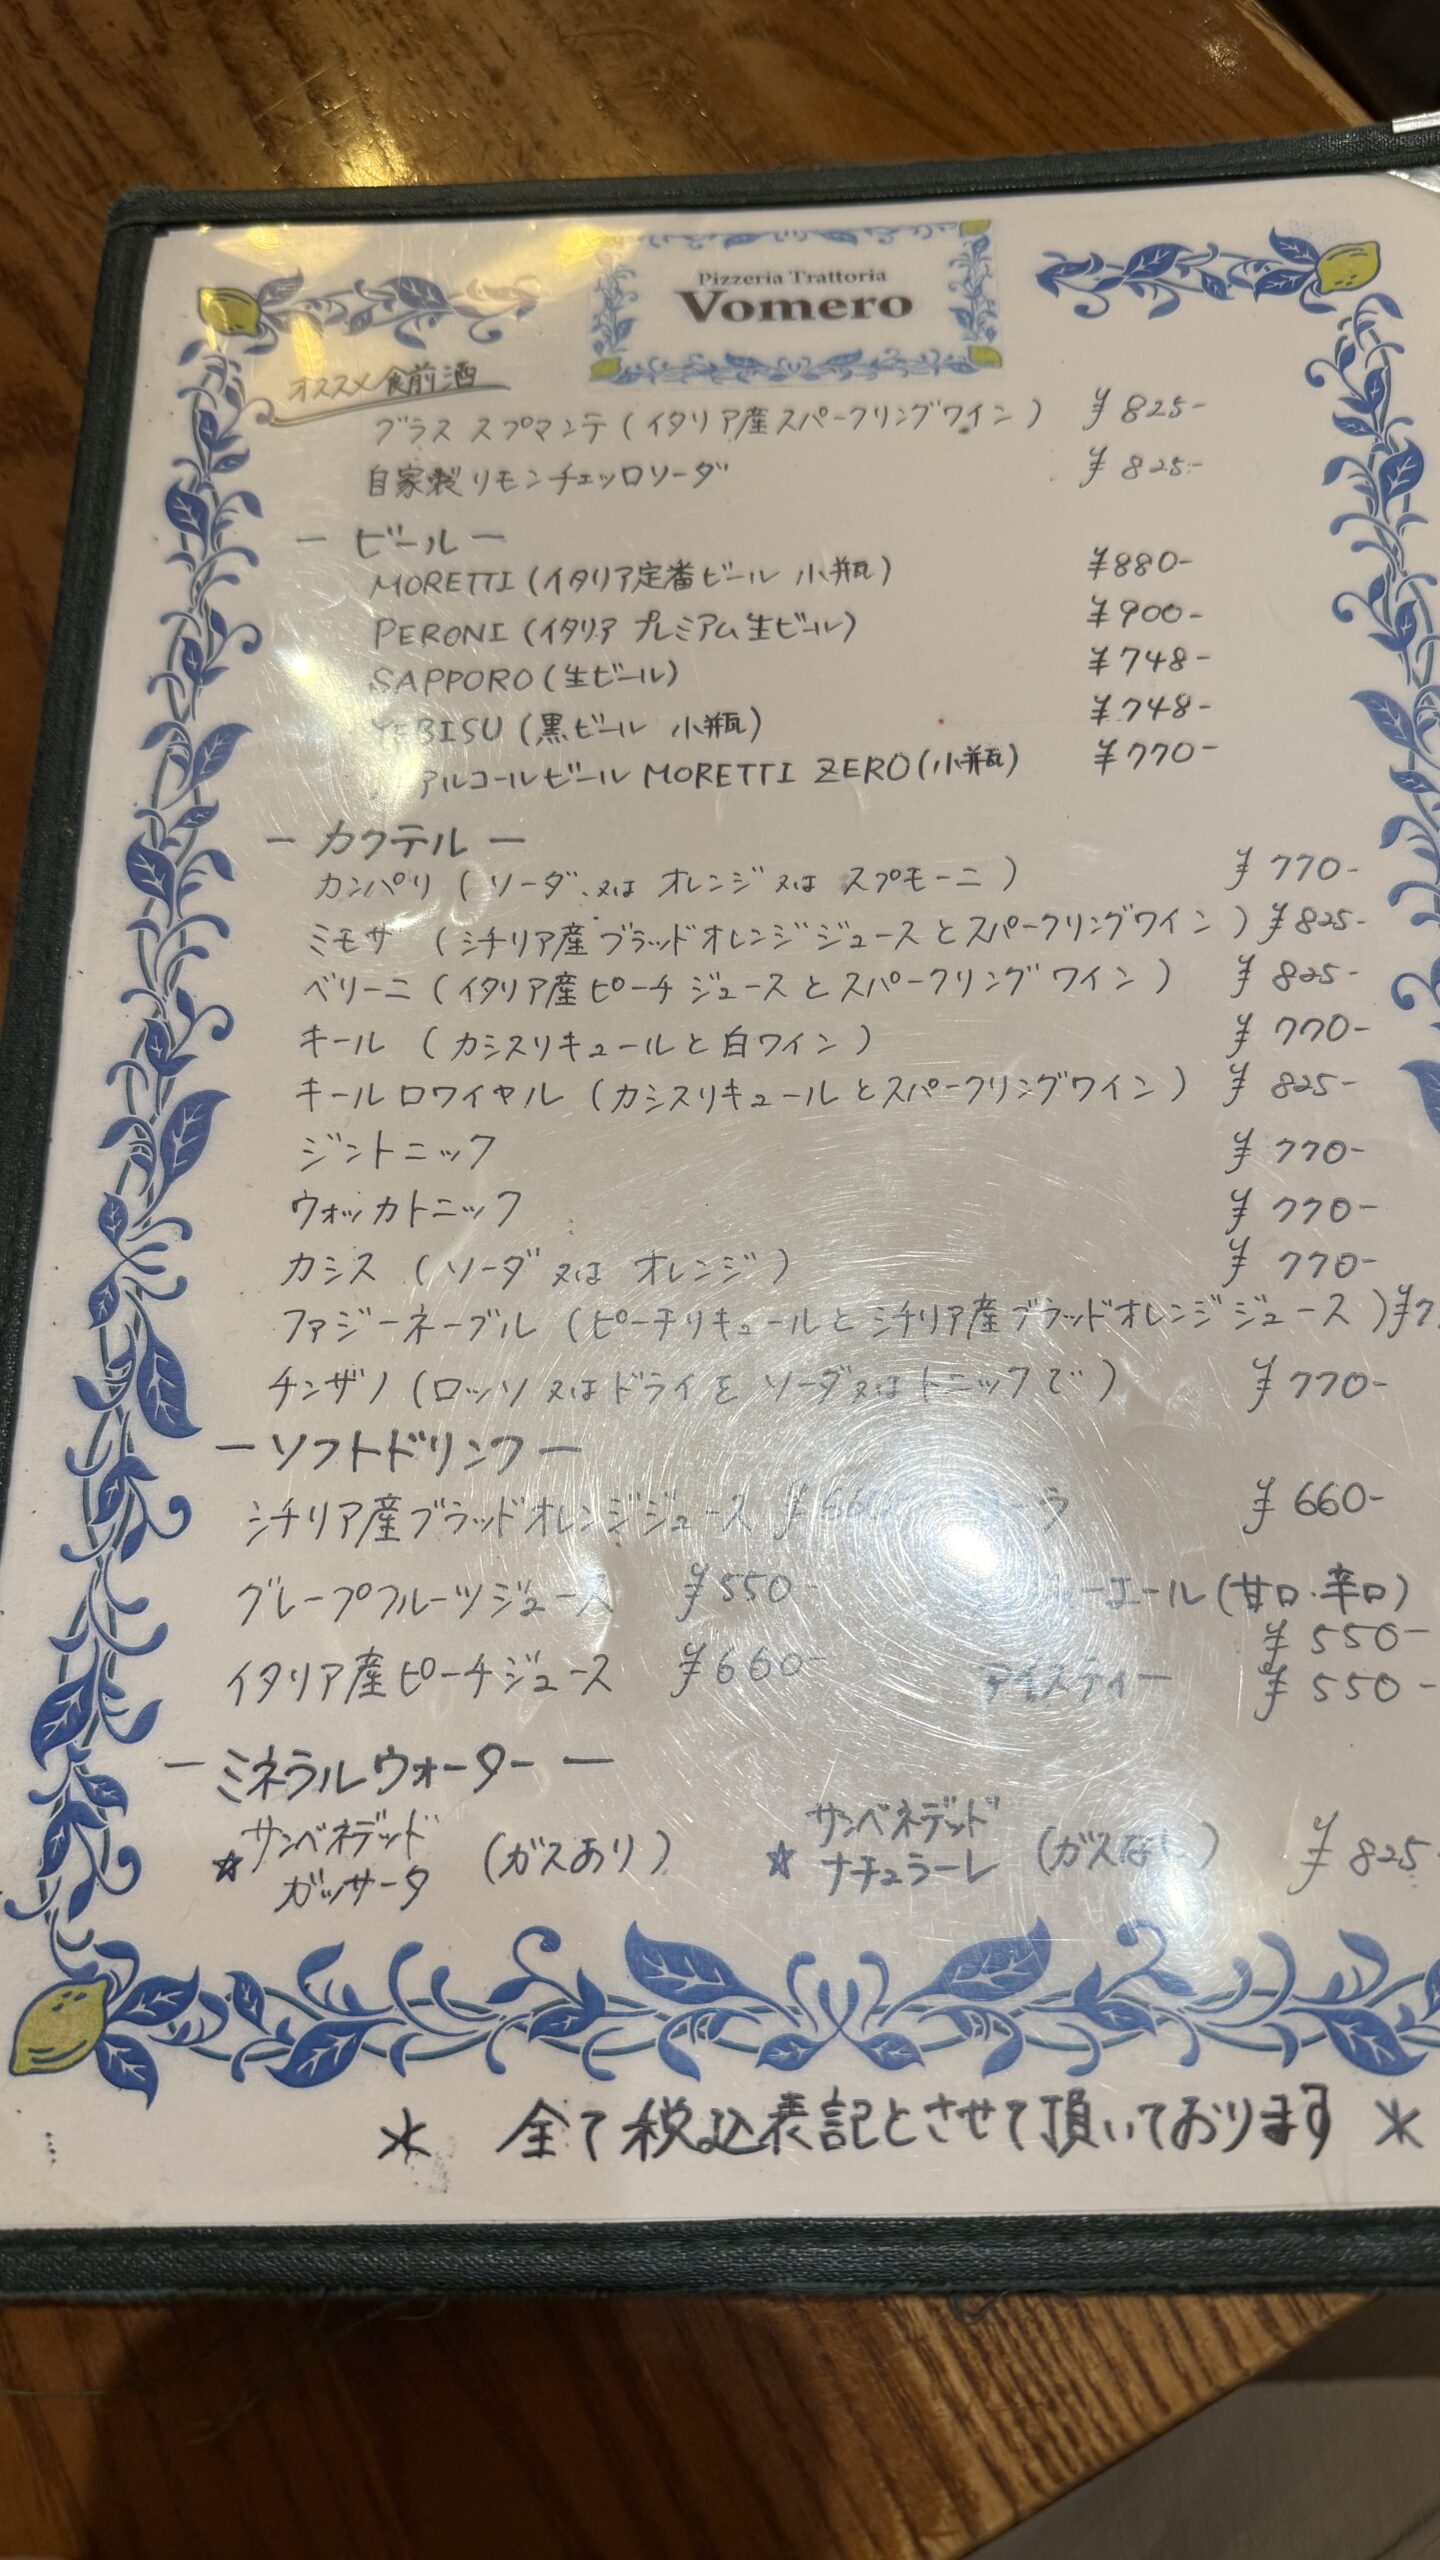 Pizzeria Trattoria
Vomero
オススメ食前酒
グラス スプマンテ (イタリア産スパークリングワイン) ¥825-
自家製リモンチェッロソーダ ¥825-
— ビール —
MORETTI (イタリア定番ビール 小瓶) ¥880-
PERONI (イタリア プレミアム生ビール) ¥900-
SAPPORO (生ビール) ¥748-
YEBISU (黒ビール 小瓶) ¥748-
アルコールビール MORETTI ZERO (小瓶) ¥770-
— カクテル —
カンパリ (ソーダ 又は オレンジ 又は スプモーニ) ¥770-
ミモザ (シチリア産ブラッドオレンジジュースとスパークリングワイン) ¥825-
ベリーニ (イタリア産ピーチジュースとスパークリングワイン) ¥825-
キール (カシスリキュールと白ワイン) ¥770-
キールロワイヤル (カシスリキュールとスパークリングワイン) ¥825-
ジントニック ¥770-
ウォッカトニック ¥770-
カシス (ソーダ 又は オレンジ) ¥770-
ファジーネーブル (ピーチリキュールとシチリア産ブラッドオレンジジュース) ¥7
チンザノ (ロッソ又はドライをソーダ又はトニックで) ¥770-
— ソフトドリンク —
シチリア産ブラッドオレンジジュース ¥660 ¥660-
グレープフルーツジュース ¥550- ーエール (甘口・辛口)
¥550-
イタリア産ピーチジュース ¥660- アイスティー ¥550-
— ミネラルウォーター —
☆ サンベネデッド ガッサータ (ガスあり) ☆ サンベネデッド ナチュラーレ (ガスなし) ¥825
* 全て税込表記とさせて頂いております *